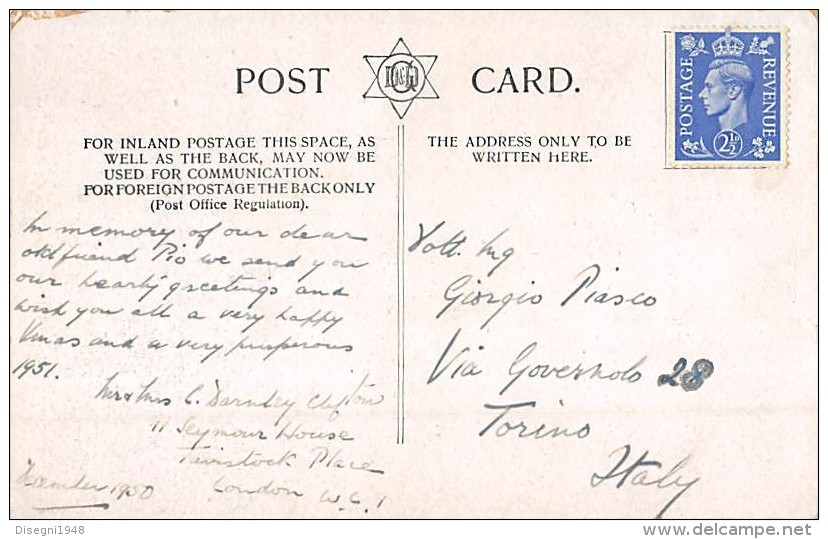 POST CARD.
FOR INLAND POSTAGE THIS SPACE, AS
WELL AS THE BACK, MAY NOW BE
USED FOR COMMUNICATION.
FOR FOREIGN POSTAGE THE BACK ONLY
(Post Office Regulation).
In memory of our dear
old friend Pio we send you
our hearty greetings and
wish you all a very happy
Xmas and a very prosperous
1951.
Mr & Mrs C. Darnley Clifton
11 Seymour House
Tavistock Place
London W.C.1
December 1950
THE ADDRESS ONLY TO BE
WRITTEN HERE.
Dott. Ing
Giorgio Piasco
Via Governolo 28
Torino
Italy
POSTAGE
REVENUE
2½D
Disegni1948
www.delcampe.net